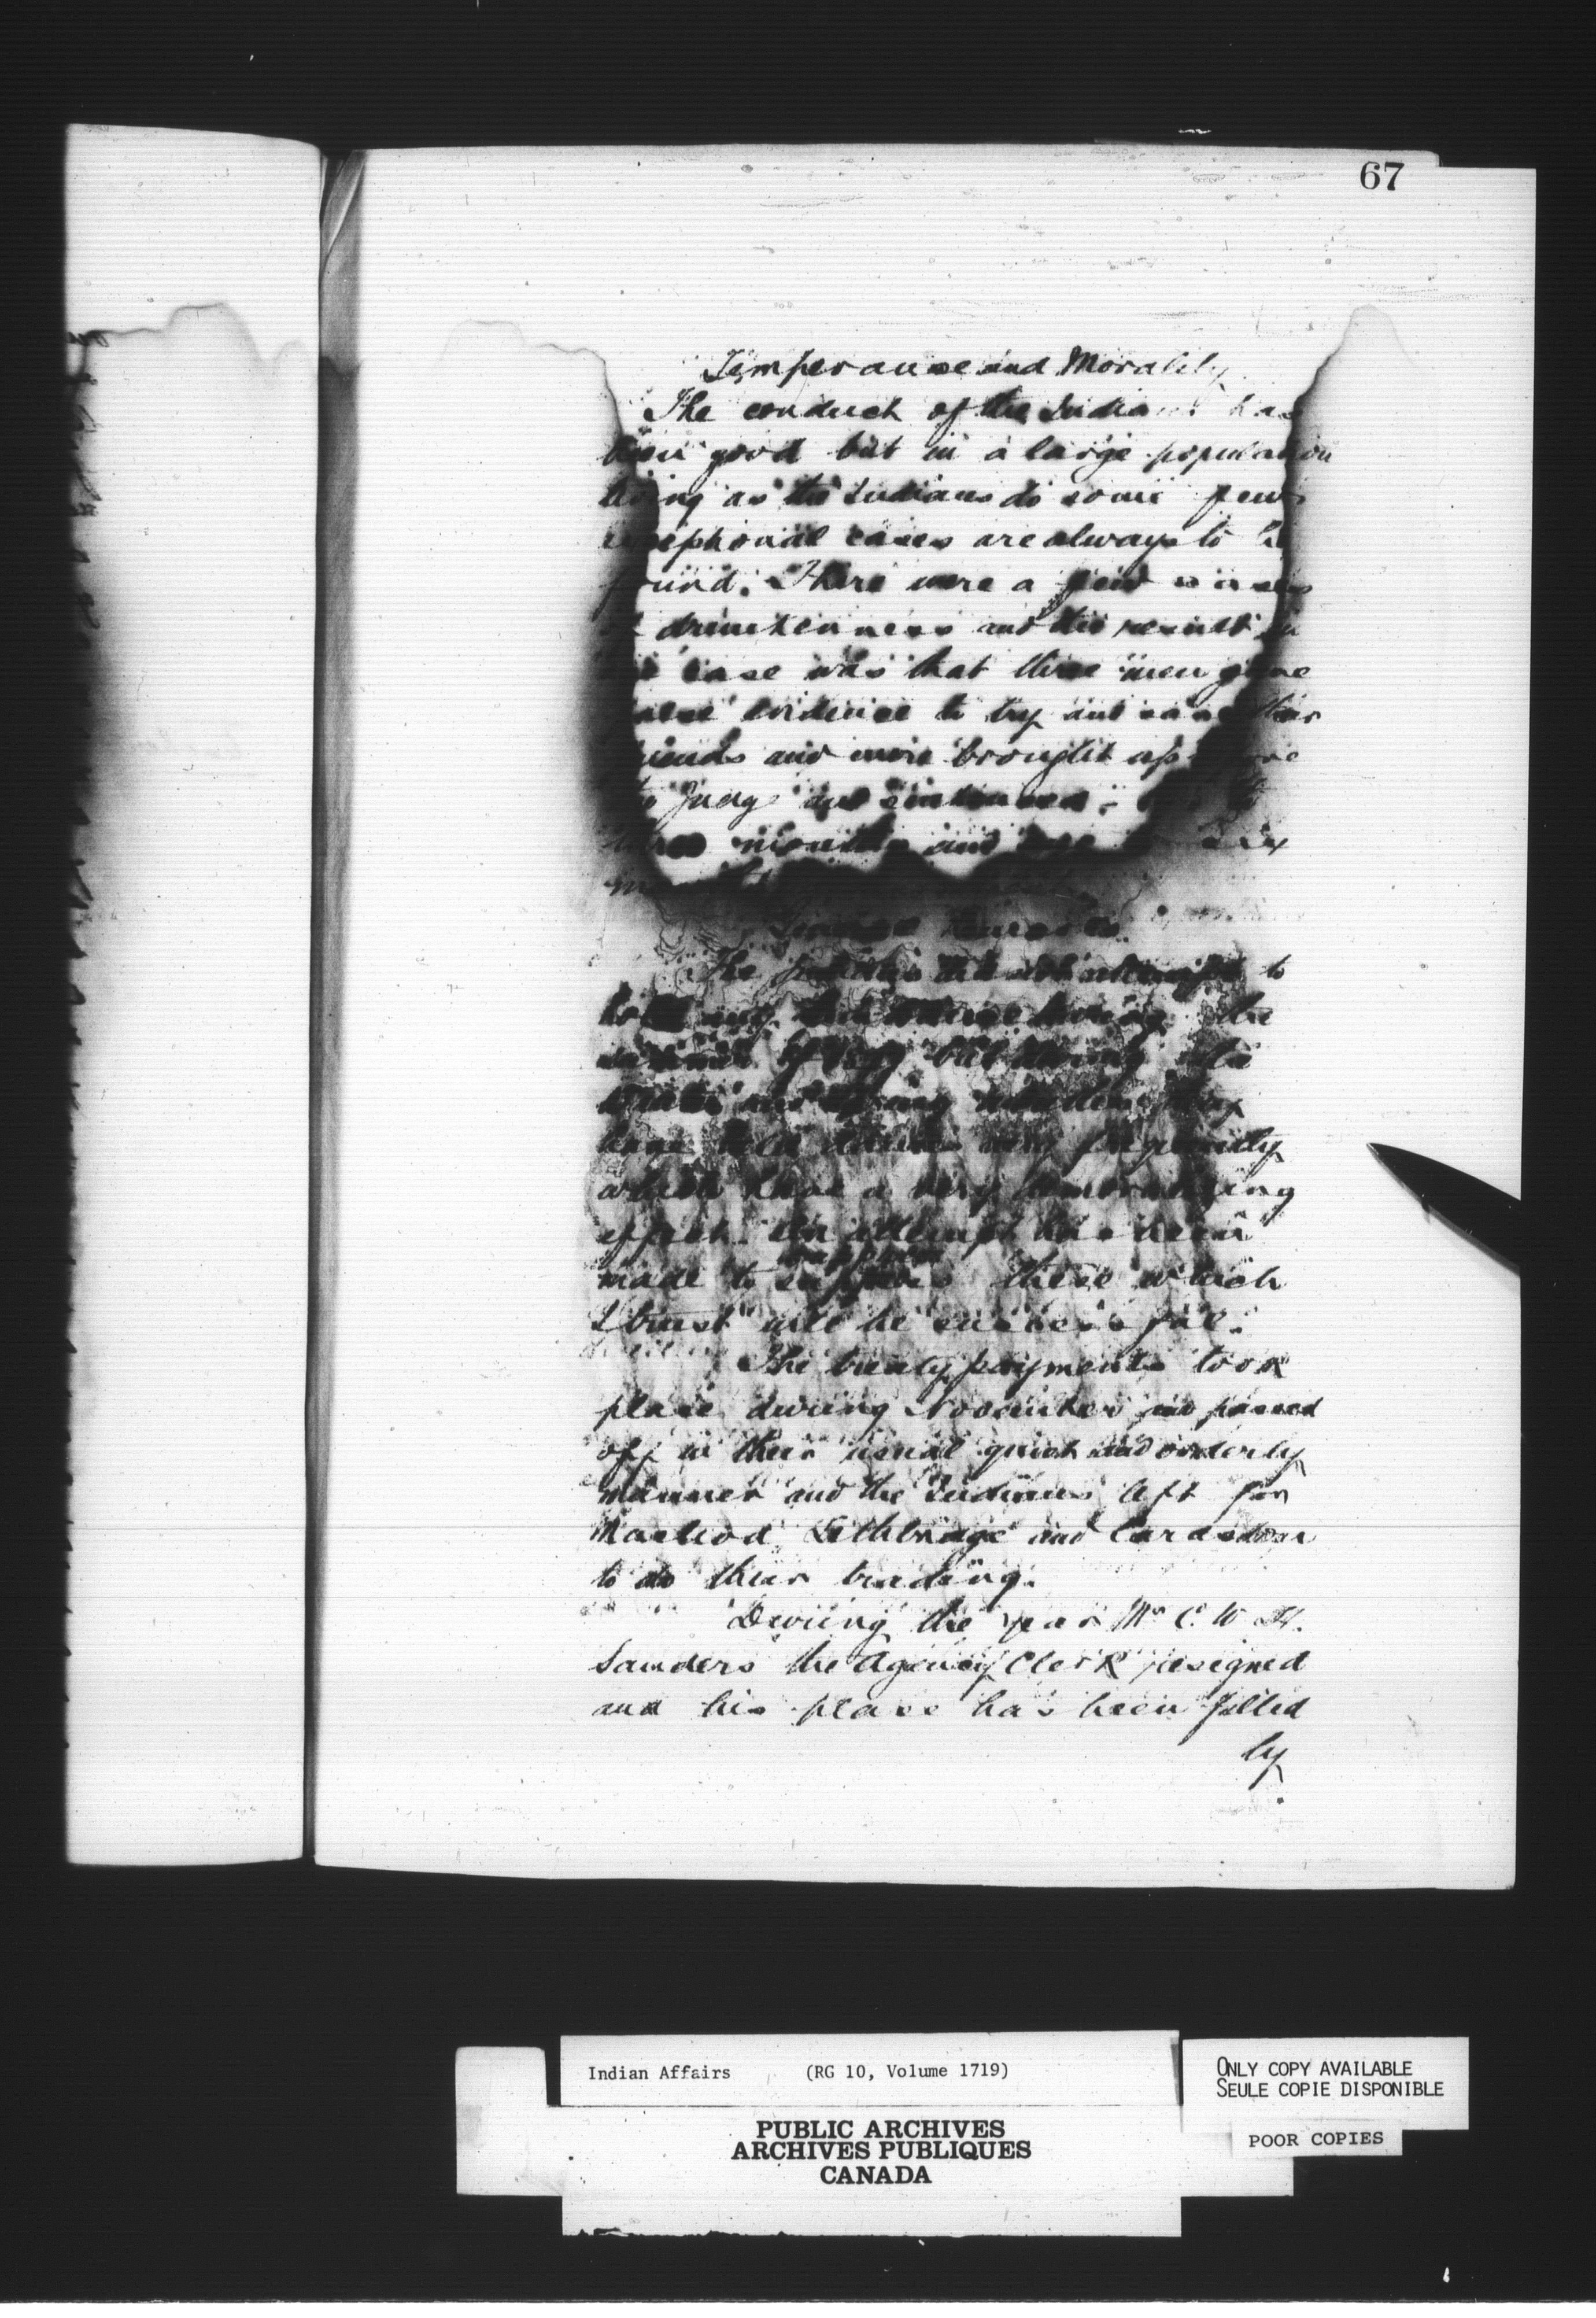 67
Temperance and Morality
The conduct of the Indians has
been good but in a large population
living as the Indians do some few
exceptional cases are always to be
found. There were a few cases
of drunkenness and the result in
case was that three men gave
false evidence to try and save their
friends and were brought up before
the Judge and sentenced
three months and six
General Remarks
The Indians did not attempt to
hold any dance during the
summer but during the
winter and spring they
have held dances very frequently
which have a very demoralizing
effect. An attempt has been
made to suppress these which
I trust will be successful.
The treaty payments took
place during November and passed
off in their usual quiet and orderly
manner and the Indians left for
Macleod, Lethbridge and Cardston
to do their trading.
During the year Mr C. W. H.
Sanders the Agency Clerk resigned
and his place has been filled
by
Indian Affairs (RG 10, Volume 1719)
PUBLIC ARCHIVES
ARCHIVES PUBLIQUES
CANADA
ONLY COPY AVAILABLE
SEULE COPIE DISPONIBLE
POOR COPIES